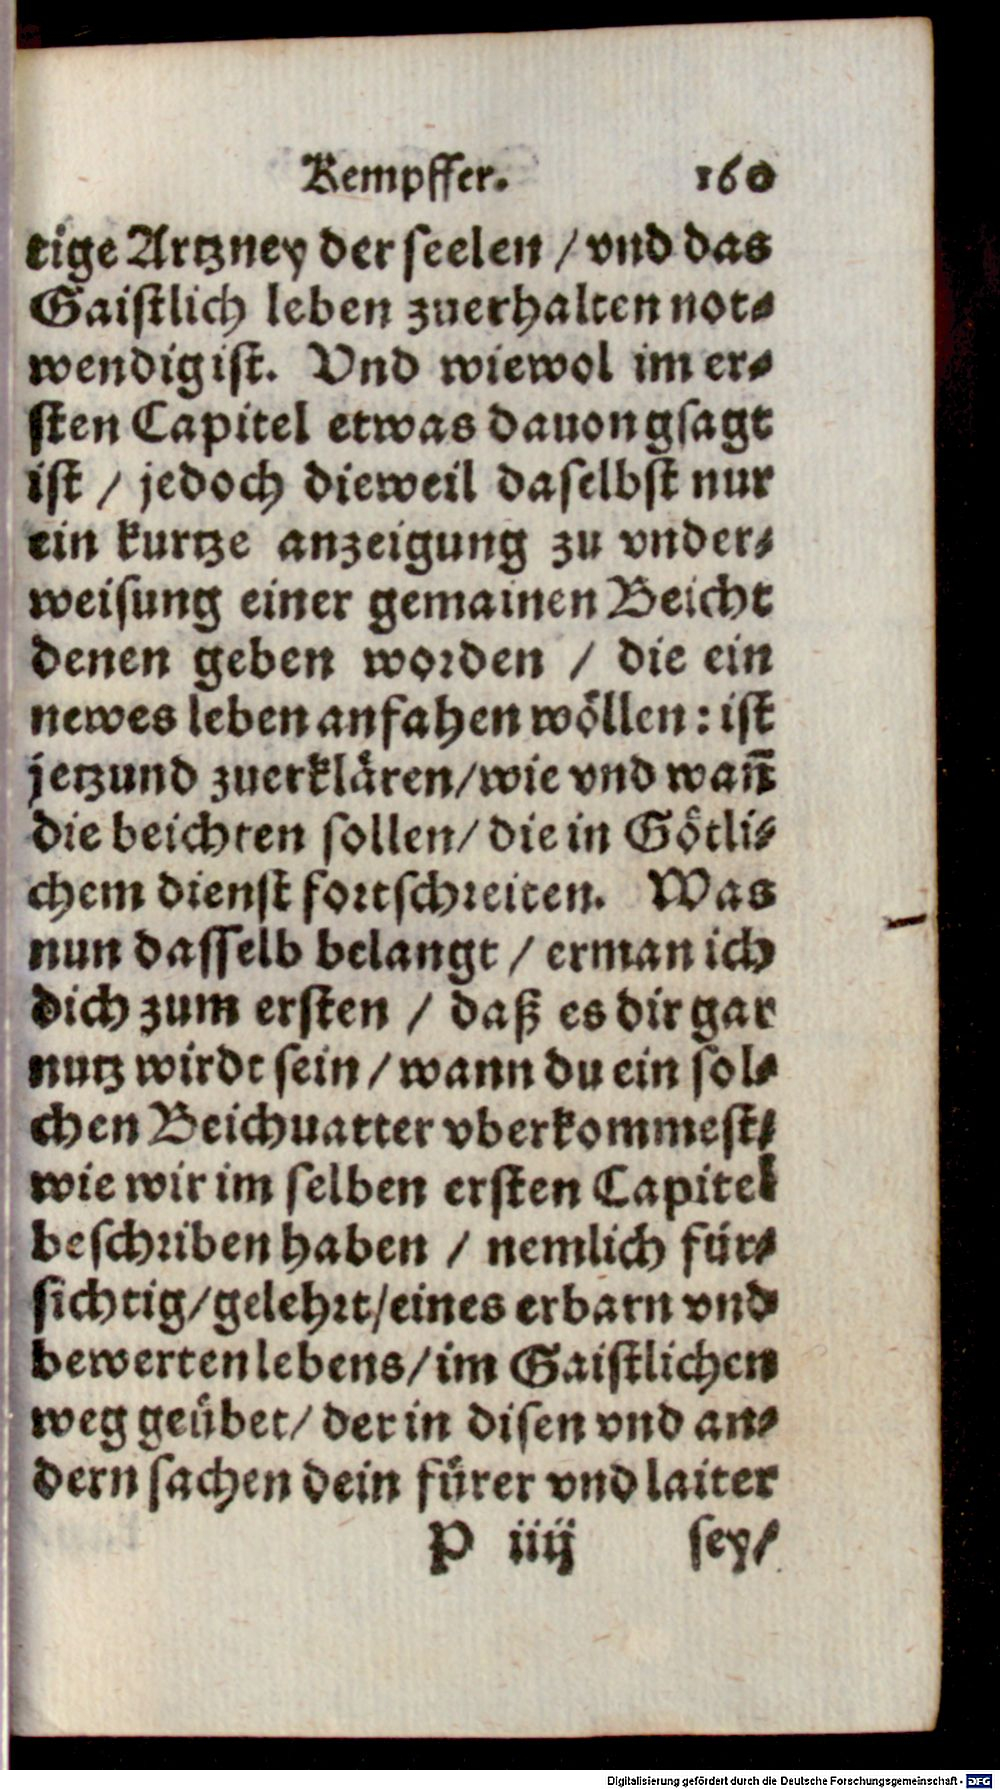 Kempffer. 160
tige Artzney der seelen / vnd das
Gaistlich leben zuerhalten not⸗
wendig ist. Vnd wiewol im er⸗
sten Capitel etwas dauon gsagt
ist / jedoch dieweil daselbst nur
ein kurtze anzeigung zu vnder⸗
weisung einer gemainen Beicht
denen geben worden / die ein
newes leben anfahen wöllen: ist
jetzund zuerklären/wie vnd wañ
die beichten sollen/ die in Götli⸗
chem dienst fortschreiten. Was
nun dasselb belangt / erman ich
dich zum ersten / daß es dir gar
nutz wirdt sein / wann du ein sol⸗
chen Beichuatter vberkommest/
wie wir im selben ersten Capitel
beschriben haben / nemlich für⸗
sichtig/gelehrt/eines erbarn vnd
bewerten lebens/im Gaistlichen
weg geübet/ der in disen vnd an⸗
dern sachen dein fürer vnd laiter
P iiij sey/
Digitalisierung gefördert durch die Deutsche Forschungsgemeinschaft - DFG